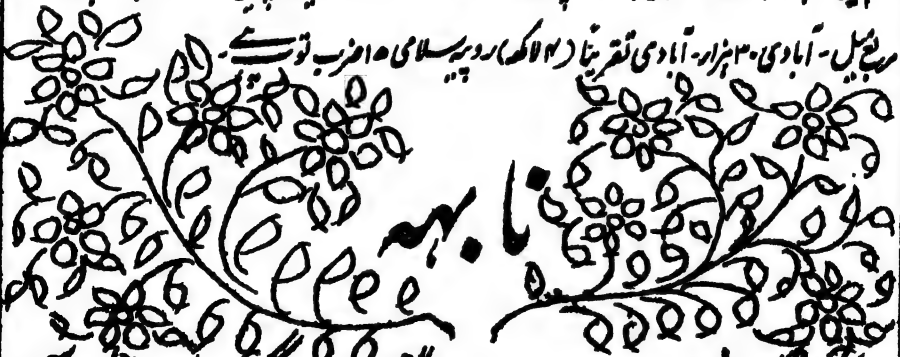 مربع میل - آبادی ۳۰ ہزار - آبادی تقریبًا (۴ لاکھ) روپیہ سلامی ۱۵ ضرب توپ ہے -
نابھہ